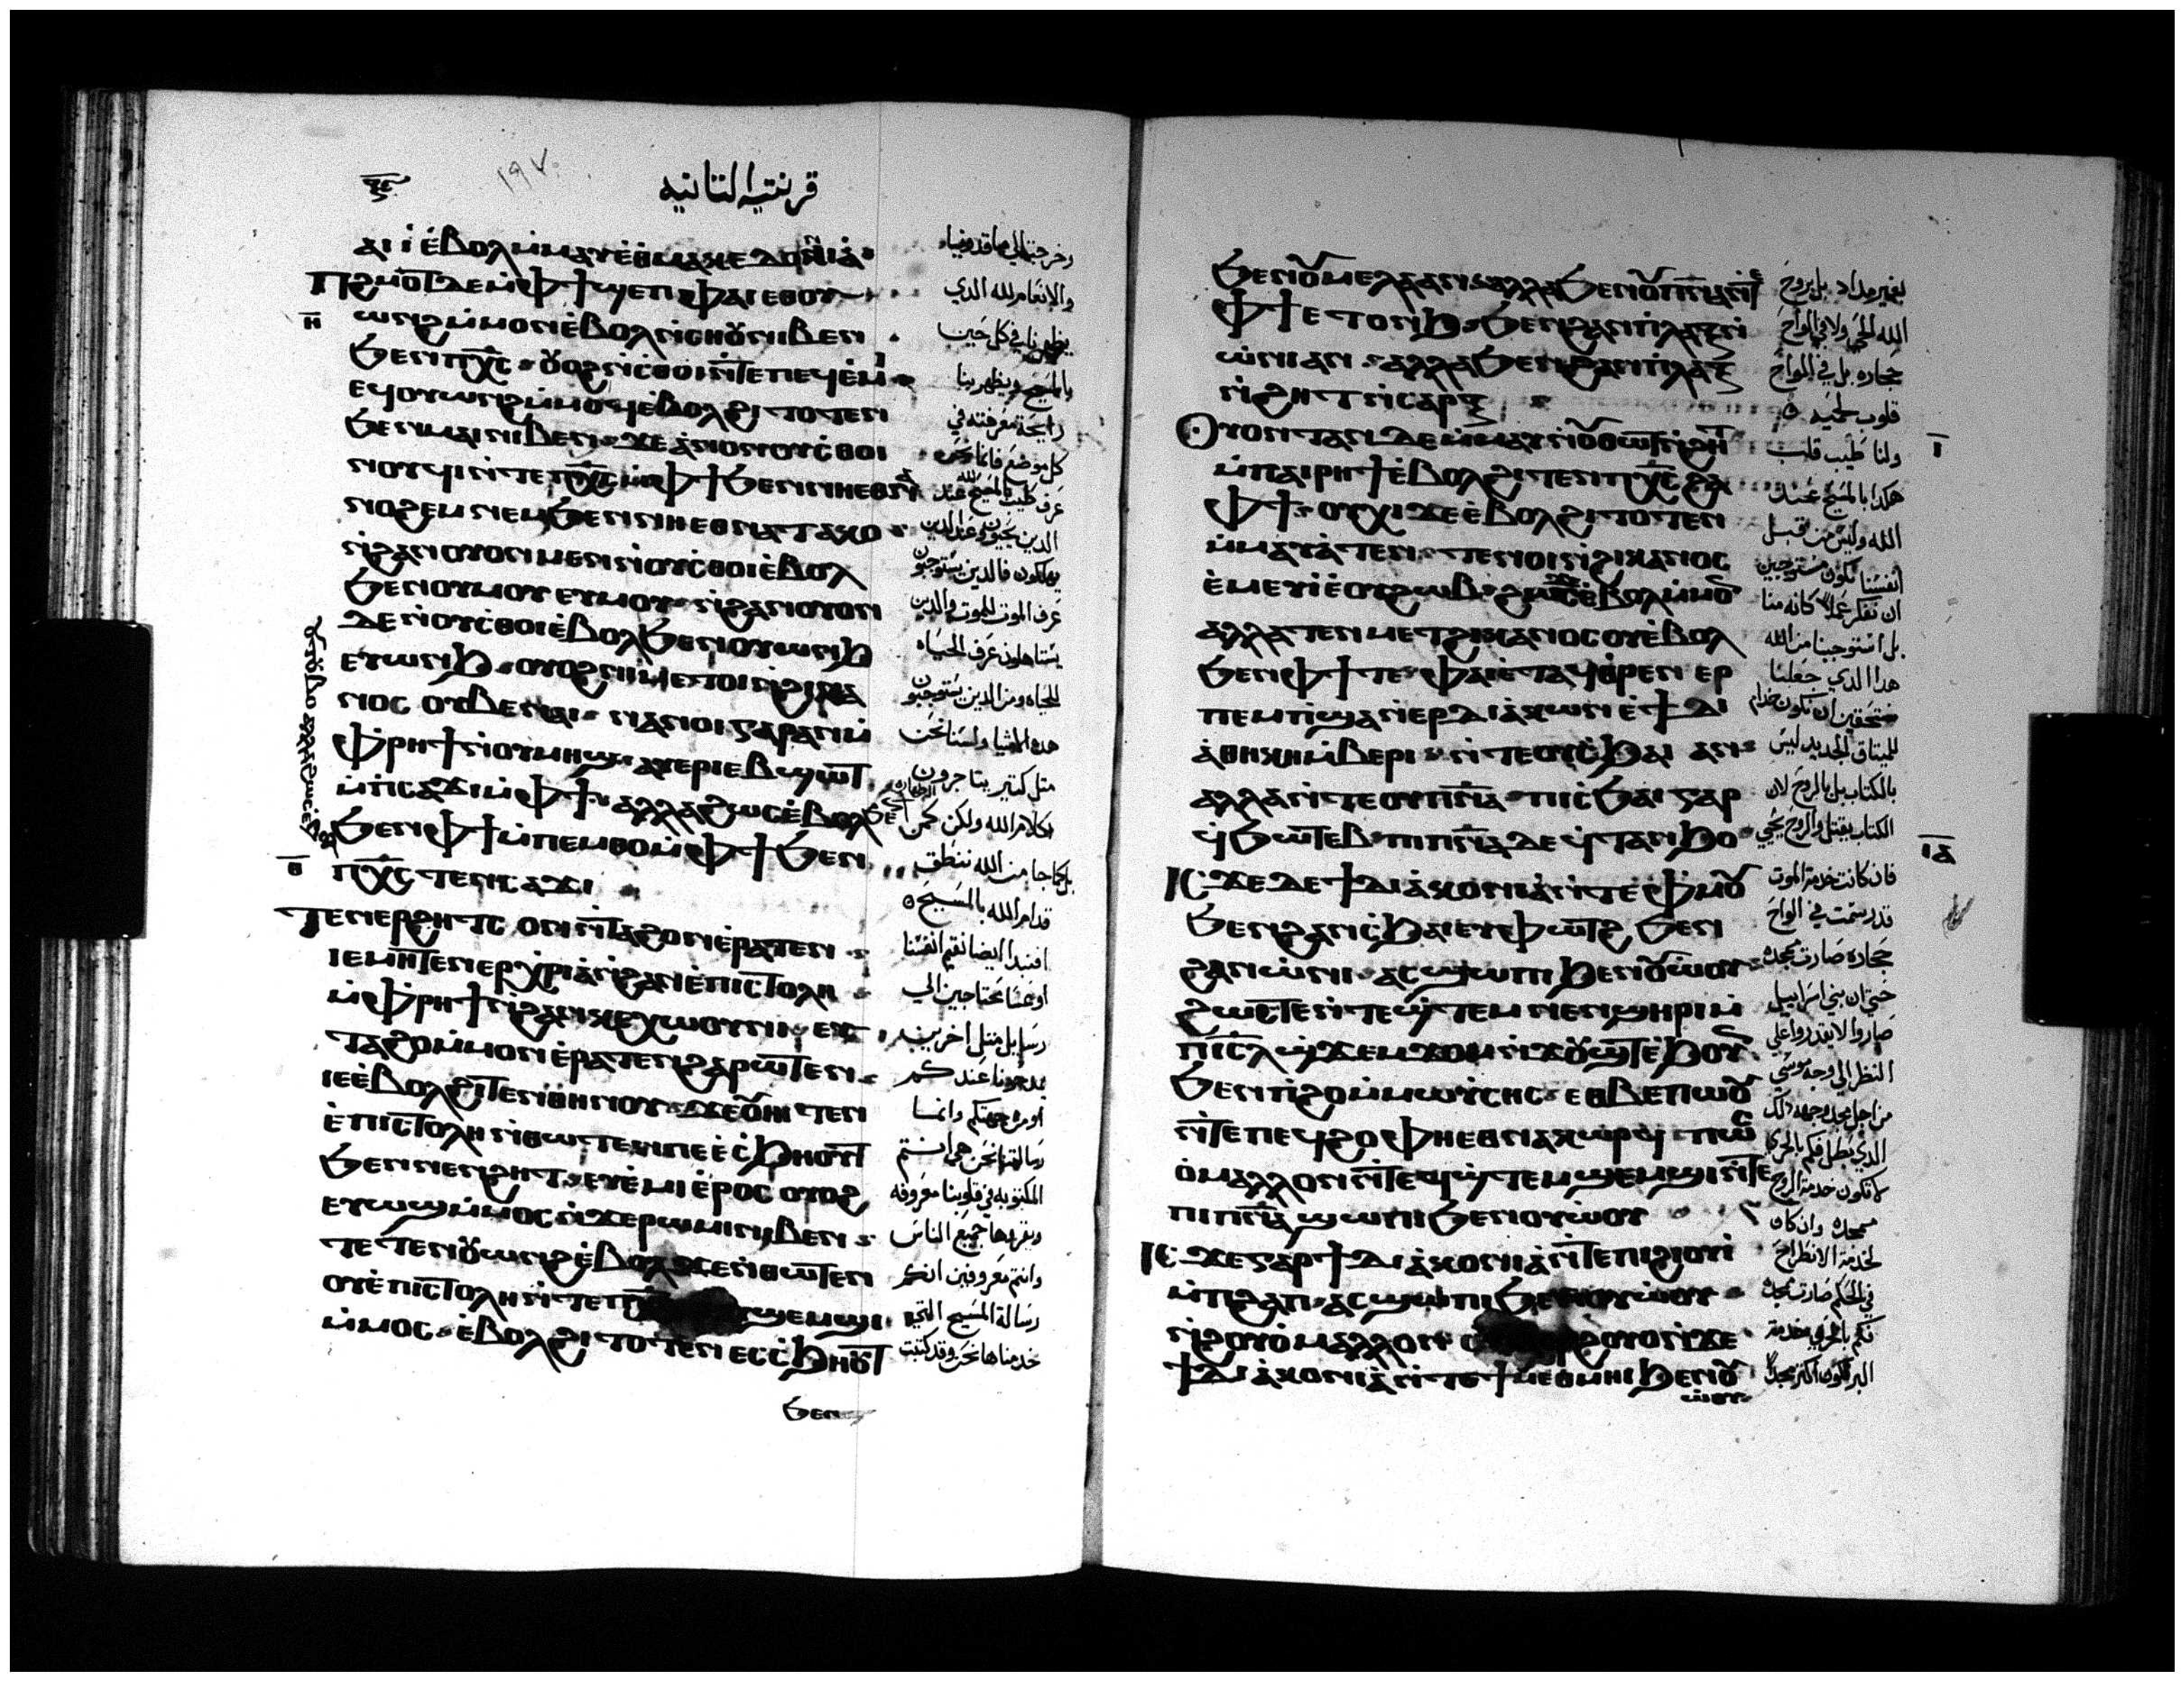 قرنتيه التانيه
١٩٧
ⲁⲓⲓ̀ ⲉ̀ⲃⲟⲗ ⲙ̀ⲙⲁⲩ ⲉ̀ⲑⲙⲁⲕⲉⲇⲟⲛⲓⲁ̀
ⲡϩⲙⲟⲧ ⲇⲉ ⲙ̀ⲫϯ ϣⲉⲡ ⲫⲁⲓ ⲉⲑⲟⲩ
ⲏ
ⲱⲛϩ ⲙ̀ⲙⲟⲛ ⲉ̀ⲃⲟⲗ ⲛ̀ⲥⲏⲟⲩ ⲛⲓⲃⲉⲛ
ϧⲉⲛ ⲡⲭ̅ⲥ̅ ⲟⲩⲟϩ ⲛ̀ⲥ̀ⲑⲟⲓ ⲛ̀ⲧⲉ ⲡⲉϥⲉ̀ⲙⲓ
ⲉϥⲟⲩⲱⲛϩ ⲙ̀ⲙⲟϥ ⲉ̀ⲃⲟⲗ ϩⲓⲧⲟⲧⲉⲛ
ϧⲉⲛ ⲙⲁⲓ ⲛⲓⲃⲉⲛ ϫⲉ ⲁ̀ⲛⲟⲛ ⲟⲩⲥ̀ⲑⲟⲓ
ⲛⲟⲩϥⲓ ⲛ̀ⲧⲉ ⲡⲭ̅ⲥ̅ ⲙ̀ⲫϯ ϧⲉⲛ ⲛⲏⲉⲑⲛⲁ
ⲛⲟϩⲉⲙ ⲛⲉⲙ ϧⲉⲛ ⲛⲏⲉⲑⲛⲁⲧⲁⲕⲟ
ⲛ̀ϩⲁⲛⲟⲩⲟⲛ ⲙⲉⲛ ⲛ̀ⲟⲩⲥⲑⲟⲓ ⲉ̀ⲃⲟⲗ
ϧⲉⲛ ⲟⲩⲙⲟⲩ ⲉⲩⲙⲟⲩ ⲛ̀ϩⲁⲛⲟⲩⲟⲛ
ⲇⲉ ⲛ̀ⲟⲩⲥⲑⲟⲓ ⲉ̀ⲃⲟⲗ ϧⲉⲛ ⲟⲩⲱⲛϧ
ⲉⲩⲱⲛϧ ⲟⲩⲟϩ ⲛⲓⲙ ⲉⲧⲟⲓ ⲛ̀ϩⲓⲕⲁ
ⲛⲟⲥ ⲟⲩⲃⲉ ⲛⲁⲓ ⲛⲁⲛⲟⲓ ⲅⲁⲣ ⲁⲛ ⲙ̀
ⲫⲣⲏϯ ⲛ̀ⲟⲩⲙⲏϣ ⲁⲩⲉⲣⲓⲉⲃϣⲱⲧ
ⲙ̀ⲡⲥⲁϫⲓ ⲙ̀ⲫϯ ⲁⲗⲗⲁ ϩⲱⲥ ⲉ̀ⲃⲟⲗ ϧⲉⲛ
ϧⲉⲛ ⲫϯ ⲙ̀ⲡⲉⲙⲑⲟ ⲙ̀ⲫϯ ϧⲉⲛ
ⲑ
ⲡⲭ̅ⲥ̅ ⲧⲉⲛⲥⲁϫⲓ
ⲧⲉⲛⲉⲣϩⲏⲧⲥ ⲟⲛ ⲛ̀ⲧⲁϩⲟⲛ ⲉ̀ⲣⲁⲧⲉⲛ
ⲓⲉ ⲙⲏ ⲧⲉⲛⲉⲣⲭⲣⲓⲁ̀ ⲛ̀ϩⲁⲛⲉ̀ⲡⲓⲥⲧⲟⲗⲏ
ⲙ̀ⲫⲣⲏϯ ⲛ̀ϩⲁⲛⲕⲉⲭⲱⲟⲩⲛⲓ ⲉⲩ
ⲧⲁϩⲟ ⲙ̀ⲙⲟⲛ ⲉ̀ⲣⲁⲧⲉⲛ ϩⲁⲣⲱⲧⲉⲛ
ⲓⲉ ⲉ̀ⲃⲟⲗ ϩⲓⲧⲉⲛ ⲑⲏⲛⲟⲩ ϫⲉ ⲟⲩⲏⲓ ⲧⲉⲛ
ⲉ̀ⲡⲓⲥⲧⲟⲗⲏ ⲛ̀ⲑⲱⲧⲉⲛ ⲡⲉ ⲉⲥ̀ϧⲏⲟⲩⲧ
ϧⲉⲛ ⲛⲉⲛϩⲏⲧ ⲉⲩⲉ̀ⲙⲓ ⲉ̀ⲣⲟⲥ ⲟⲩⲟϩ
ⲉⲩⲱϣ ⲙ̀ⲙⲟⲥ ⲛ̀ϫⲉ ⲣⲱⲙⲓ ⲛⲓⲃⲉⲛ
ⲧⲉⲧⲉⲛⲟⲩⲱⲛϩ ⲉ̀ⲃⲟⲗ ϫⲉ ⲛ̀ⲑⲱⲧⲉⲛ
ⲟⲩⲉ̀ⲡⲓⲥⲧⲟⲗⲏ ⲛ̀ⲧⲉ ⲡⲭ̅ⲥ̅ ϣⲉⲙϣⲓ
ⲙ̀ⲙⲟⲥ ⲉ̀ⲃⲟⲗ ϩⲓⲧⲟⲧⲉⲛ ⲉⲥⲥ̀ϧⲏⲟⲩⲧ
ϧⲉⲛ
وخرجت الى ماقدونيا
والانعام لله الدي
يظهرنا في كل حين
بالمسيح ويظهر بنا
رايحة معرفته في
كل موضع فاننا نحن
عرف طيب المسيح عند الله
الدين يحيون وعند الدين
يهلكون فالدين يستوجبون
عرف الموت للموت والدين
يستاهلون عرف الحياه
للحياه ومن الدين يستوجبون
هده الاشيا ولسنا نحن
مثل كتير يتاجرون
بكلام الله ولكن كمن
بل كما من الله ننطق
قدام الله بالمسيح
افنبدا ايضا نقيم انفسنا
او عسا محتاجين الي
رسايل متل اخرين
عندكم
او من جهتكم وانما
رسالتنا نحن هي انتم
المكتوبه في قلوبنا معروفه
ويقراها جميع الناس
وانتم معروفين انكم
رسالة المسيح التي
خدمناها نحن وقد كتبت
ϧⲉⲛ ⲟⲩⲙⲉⲗⲁ ⲁⲛ ⲁⲗⲗⲁ ϧⲉⲛ ⲟⲩⲡ̅ⲛ̅ⲁ̅ ⲛ̀ⲧⲉ
ⲫϯ ⲉⲧⲟⲛϧ ϧⲉⲛ ϩⲁⲛⲡⲗⲁⲝ ⲛ̀
ⲱ̀ⲛⲓ ⲁⲛ ⲁⲗⲗⲁ ϧⲉⲛ ϩⲁⲛⲡⲗⲁⲝ
ⲛ̀ϩⲏⲧ ⲛ̀ⲥⲁⲣⲝ
ⲓ
ⲟⲩⲟⲛⲧⲁⲛ ⲇⲉ ⲙ̀ⲙⲁⲩ ⲛ̀ⲟⲩⲑⲱⲧ ⲛ̀ϩⲏⲧ
ⲙ̀ⲡⲁⲓⲣⲏϯ ⲉ̀ⲃⲟⲗ ϩⲓⲧⲉⲛ ⲡⲭ̅ⲥ̅ ϩⲁ
ⲫϯ ⲟⲩⲭⲓ ϫⲉ ⲉ̀ⲃⲟⲗ ϩⲓⲧⲟⲧⲉⲛ
ⲙ̀ⲙⲁⲩⲁ̀ⲧⲉⲛ ⲧⲉⲛⲟⲓ ⲛ̀ϩⲓⲕⲁⲛⲟⲥ
ⲉ̀ⲙⲉⲩⲓ̀ ⲉ̀ⲟⲩϩⲱⲃ ϩⲱⲥ ⲉ̀ⲃⲟⲗ ⲙ̀ⲙⲟⲛ
ⲁⲗⲗⲁ ⲧⲉⲛⲙⲉⲧϩⲓⲕⲁⲛⲟⲥ ⲟⲩⲉ̀ⲃⲟⲗ
ϧⲉⲛ ⲫϯ ⲧⲉ ⲫⲁⲓ ⲉ̀ⲧⲁϥⲑⲣⲉⲛⲉⲣ
ⲡⲉⲙⲡϣⲁ ⲛ̀ⲉⲣⲇⲓⲁ̀ⲕⲱⲛ ⲉ̀ϯⲇⲓ
ⲁ̀ⲑⲏⲕⲏ ⲙ̀ⲃⲉⲣⲓ ⲛ̀ⲧⲉ ⲟⲩⲥ̀ϧⲁⲓ ⲁⲛ
ⲁⲗⲗⲁ ⲛ̀ⲧⲉ ⲟⲩⲡ̅ⲛ̅ⲁ̅ ⲡⲓⲥ̀ϧⲁⲓ ⲅⲁⲣ
ϥϧⲱⲧⲉⲃ ⲡⲓⲡ̅ⲛ̅ⲁ̅ ⲇⲉ ϥⲧⲁⲛϧⲟ
ⲓⲁ
ⲓⲥϫⲉ ⲇⲉ ϯⲇⲓⲁ̀ⲕⲟⲛⲓⲁ̀ ⲛ̀ⲧⲉ ⲫ̀ⲙⲟⲩ
ϧⲉⲛ ϩⲁⲛⲥ̀ϧⲁⲓ ⲉⲩⲫⲱⲧϩ ϧⲉⲛ
ϩⲁⲛⲱ̀ⲛⲓ ⲁⲥϣⲱⲡⲓ ϧⲉⲛ ⲟⲩⲱⲟⲩ
ϩⲱⲥⲧⲉ ⲛ̀ⲧⲉϣ̀ⲧⲉⲙ ⲛⲉⲛϣⲏⲣⲓ ⲙ̀
ⲡⲓⲥ̅ⲗ̅ ϣ̀ϫⲉⲙϫⲟⲙ ⲛ̀ϫⲟⲩϣⲧ ⲉ̀ϧⲟⲩⲛ
ϧⲉⲛ ⲡϩⲟ ⲙ̀ⲙⲱⲩⲥⲏⲥ ⲉⲑⲃⲉ ⲡⲱⲟⲩ
ⲛ̀ⲧⲉ ⲡⲉϥϩⲟ ⲫⲏⲉⲑⲛⲁⲕⲱⲣϥ ⲡⲱⲥ
ⲟ̀ⲙⲁⲗⲗⲟⲛ ⲛ̀ⲧⲉϥϣ̀ⲧⲉⲙ ϣⲉⲙϣⲓ ⲛ̀ⲧⲉ
ⲡⲓⲡ̅ⲛ̅ⲁ̅ ϣⲱⲡⲓ ϧⲉⲛ ⲟⲩⲱ̀ⲟⲩ
ⲓⲥϫⲉ ⲅⲁⲣ ϯⲇⲓⲁ̀ⲕⲟⲛⲓⲁ̀ ⲛ̀ⲧⲉ ⲡⲓϩⲓⲟⲩⲓ
ⲙ̀ⲡϩⲁⲡ ⲁⲥϣⲱⲡⲓ ϧⲉⲛ ⲟⲩⲱⲟⲩ
ⲛ̀ϩⲟⲩⲟ̀ ⲙⲁⲗⲗⲟⲛ ϩⲟⲩⲟ ⲛ̀ϫⲉ
ϯⲇⲓⲁ̀ⲕⲟⲛⲓⲁ̀ ⲛ̀ⲧⲉ ϯⲙⲉⲑⲙⲏⲓ ϧⲉⲛ ⲟⲩ
ⲱ̀ⲟⲩ
بغير مداد بل بروح
الله الحي ولا في الواح
حجاره بل في الواح
قلوب لحميه
ولنا طيب قلب
هكدا بالمسيح عند
الله وليس من قبل
انفسنا نكون مستوجبين
ان نفكر عملا كانه منا
بل استوجبنا من الله
هدا الدي جعلنا
مستحقين ان نكون خدام
للميتاق الجديد ليس
بالكتاب بل بالروح لان
الكتاب يقتل والروح يحيي
فان كانت خدمة الموت
قد رسمت في الواح
حجاره صارت بمجد
حتي ان بني اسراييل
صاروا لا يقدروا علي
النظر الي وجه موسي
من اجل مجد وجهه دلك
الدي يبطل فكم بالحري
لا تكون خدمة الروح
بمجد وان كان
لخدمة الانطراح
في الحكم صارت بمجد
فكم بالحري خدمة
البر تكون اكتر مجدا